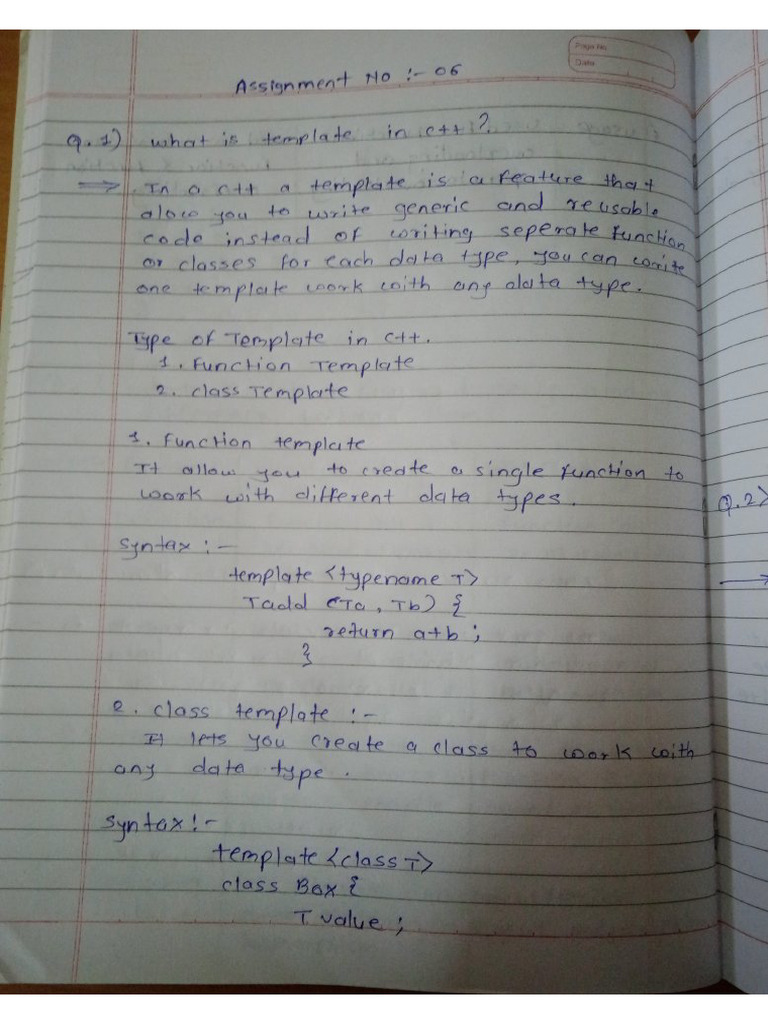 Page No.
Date
Assignment No :- 06
Q.1) what is template in c++?
⇒ In a c++ a template is a feature that
alow you to write generic and reusable
code instead of writing seperate function
or classes for each data type, you can write
one template work with any data type.
Type of Template in c++.
1. Function Template
2. class Template
1. Function template
It allow you to create a single function to
work with different data types.
Q.2)
syntax :-
template <typename T>
→
T add (T a, T b) {
return a+b ;
}
2. class template :-
It lets you create a class to work with
any data type.
syntax :-
template <class T>
class Box {
T value ;